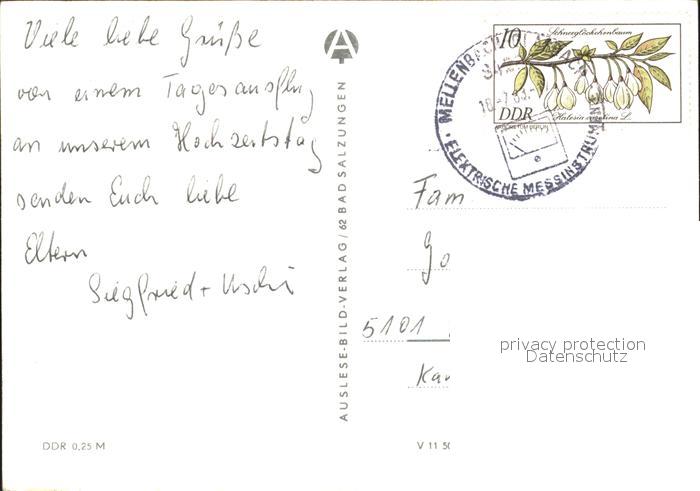 Viele liebe Grüße
von einem Tagesausflug
an unserem Hochzeitstag
senden Euch liebe
Eltern
Siegfried + Uschi
DDR 0,25 M
AUSLESE-BILD-VERLAG/62 BAD SALZUNGEN
10
Schneeglöckchenbaum
Halesia carolina L.
DDR
MELLENBACH
ELEKTRISCHE MESSINSTRUMENT
Fam
Go
5101
Kar
V 11 50
privacy protection
Datenschutz